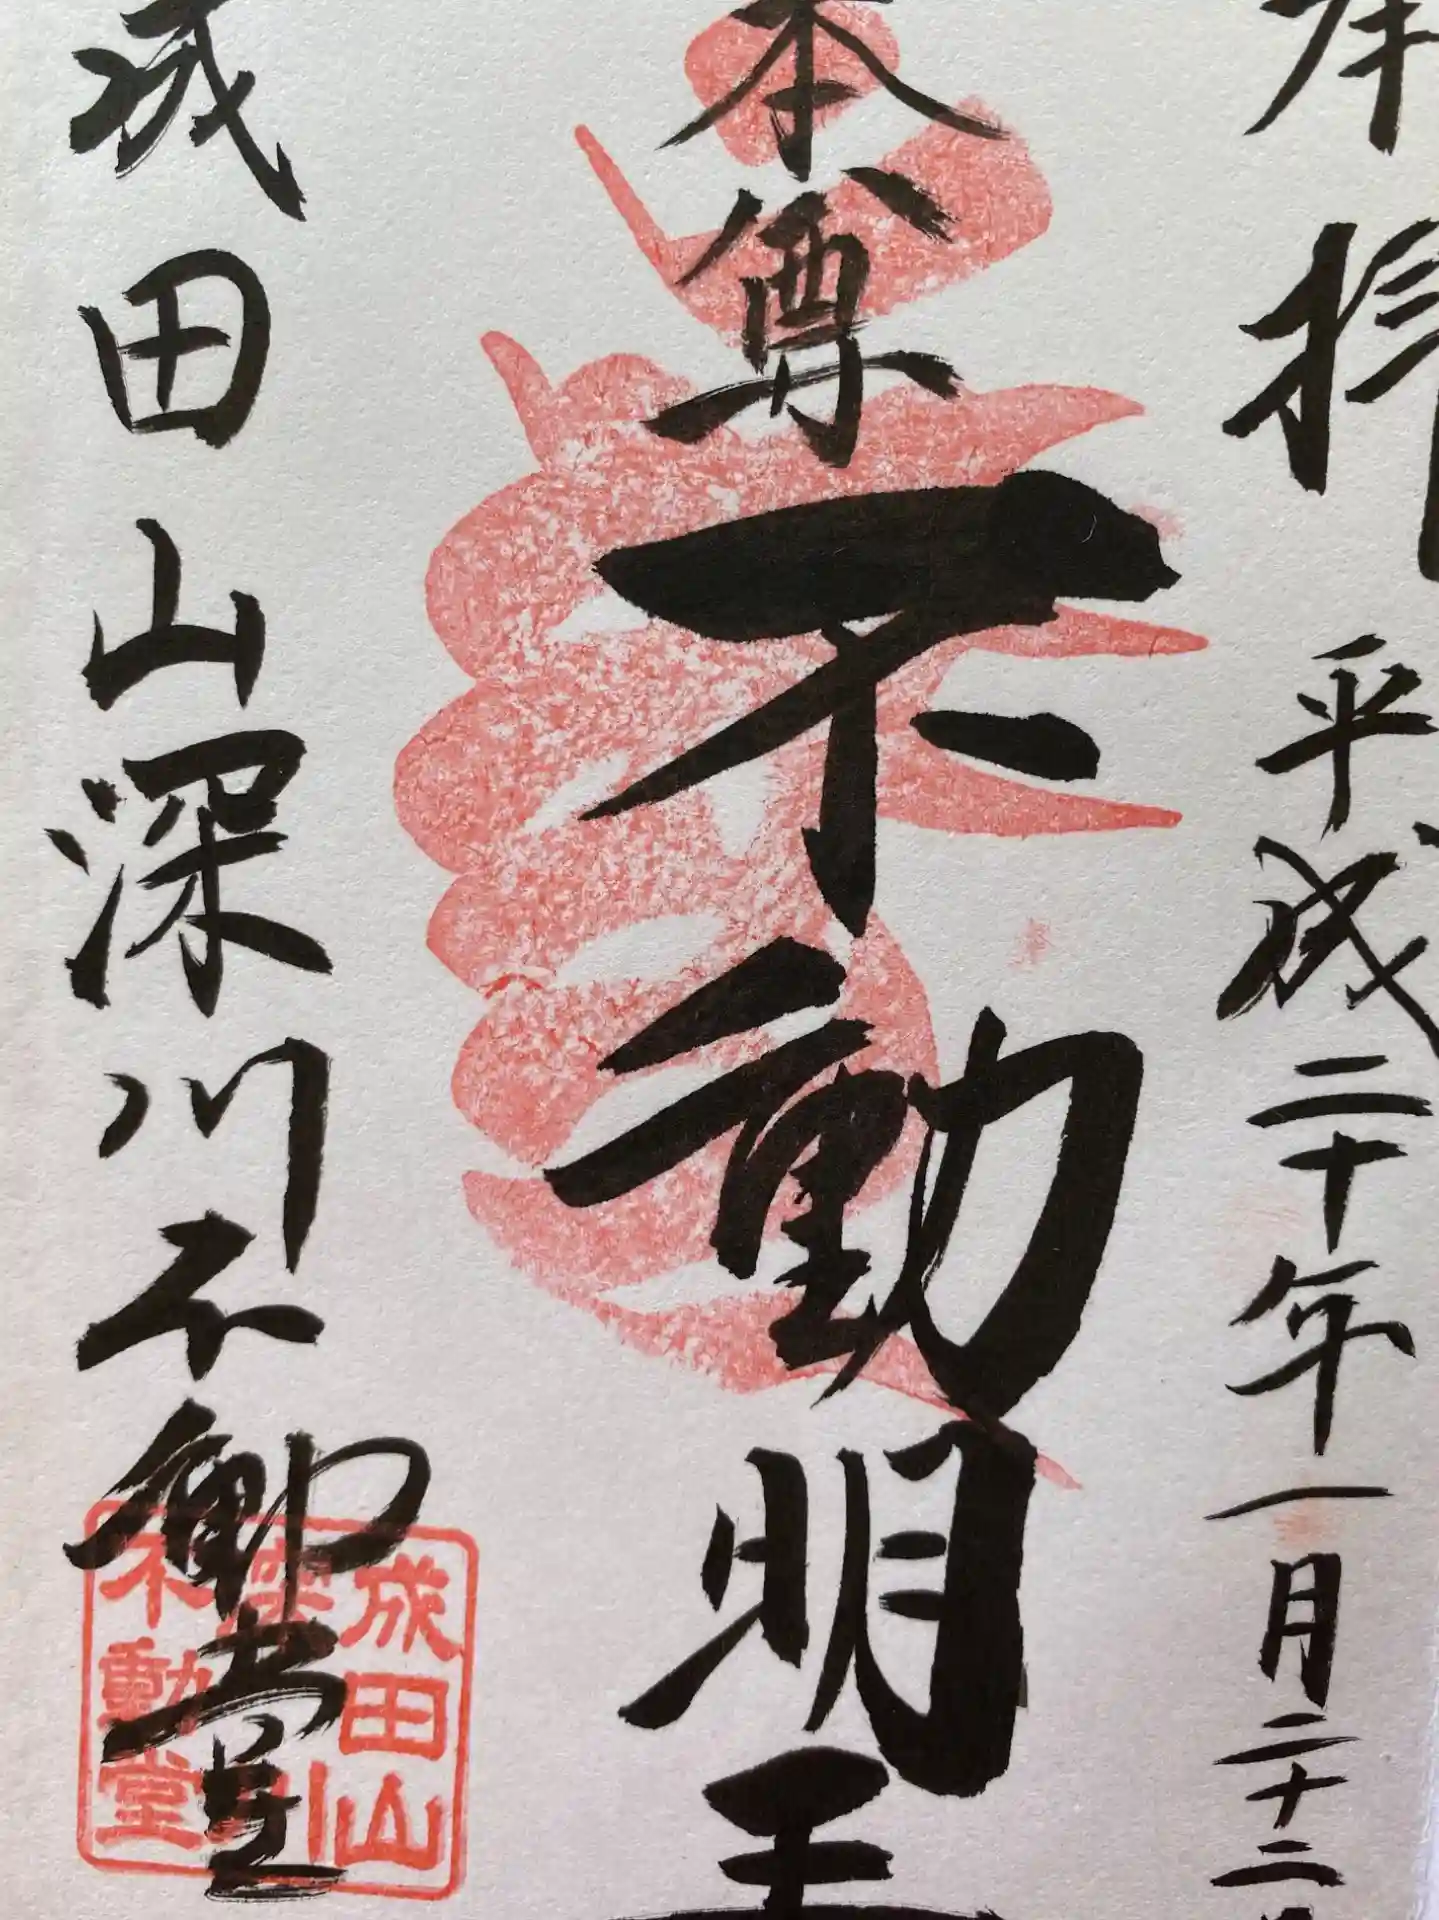 奉拝
平成二十年一月二十二日
本尊
不動明王
成田山深川不動堂
成田山
深川
不動堂